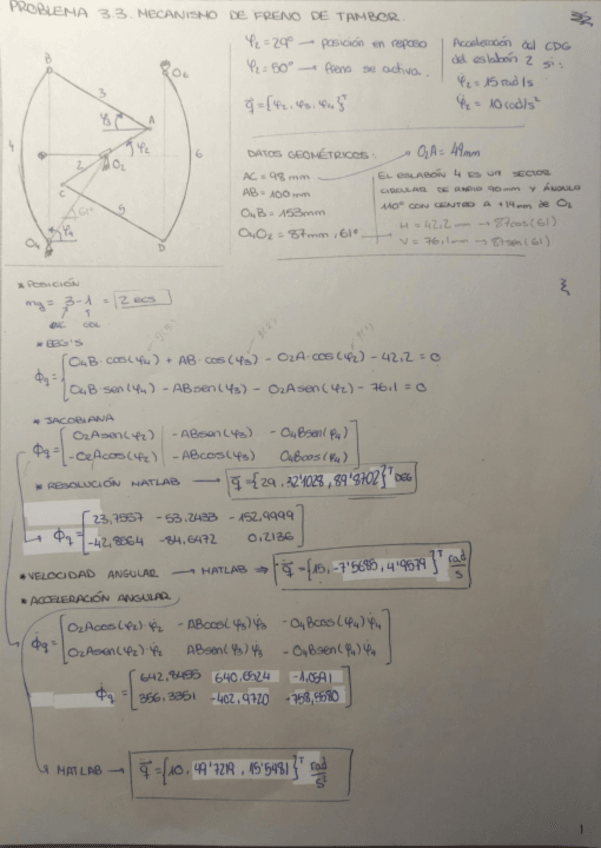 PROBLEMA 3.3. MECANISMO DE FRENO DE TAMBOR.
φ2 = 29° → posición en reposo
φ2 = 50° → freno se activa.
q̄ = {φ2, φ3, φ4}ᵀ
Aceleración del CDG
del eslabón 2 si:
φ̇2 = 15 rad/s
φ̈2 = 10 rad/s²
B
O6
3
φ3
A
4
φ2
6
2
O2
C
61°
5
φ4
O4
D
DATOS GEOMÉTRICOS:
O2A = 49mm
AC = 98 mm
AB = 100 mm
O4B = 153mm
O4O2 = 87mm, 61°
EL ESLABÓN 4 ES UN SECTOR
CIRCULAR DE RADIO 90mm Y ÁNGULO
110° CON CENTRO A +14mm DE O2
H = 42,2 mm → 87cos(61)
V = 76,1mm → 87sen(61)
* POSICIÓN
mq = 3-1 = 2 ecs
GDL
* EEG'S
Φq = { O4B·cos(φ4) + AB·cos(φ3) - O2A·cos(φ2) - 42,2 = 0
O4B·sen(φ4) - ABsen(φ3) - O2Asen(φ2) - 76,1 = 0
* JACOBIANA
Φq = [ O2Asen(φ2) -ABsen(φ3) -O4Bsen(φ4)
-O2Acos(φ2) -ABcos(φ3) O4Bcos(φ4) ]
* RESOLUCIÓN MATLAB → q̄ = {29, 32'1028, 89'8702}ᵀ DEG
Φq = [ 23,7557 -53,2433 -152,9999
-42,8564 -84,6472 0,2136 ]
* VELOCIDAD ANGULAR → MATLAB ⇒ q̄̇ = {15, -7'5685, 4'9579}ᵀ rad/s
* ACCELERACIÓN ANGULAR
Φ̇q = [ O2Acos(φ2)·φ̇2 -ABcos(φ3)φ̇3 -O4Bcos(φ4)φ̇4
O2Asen(φ2)·φ̇2 ABsen(φ3)φ̇3 -O4Bsen(φ4)φ̇4 ]
Φ̇q = [ 642,8455 640,6524 -1,0591
356,3351 -402,9720 -758,5580 ]
MATLAB → q̄̈ = {10, 49'7219, 15'5481}ᵀ rad/s²
1